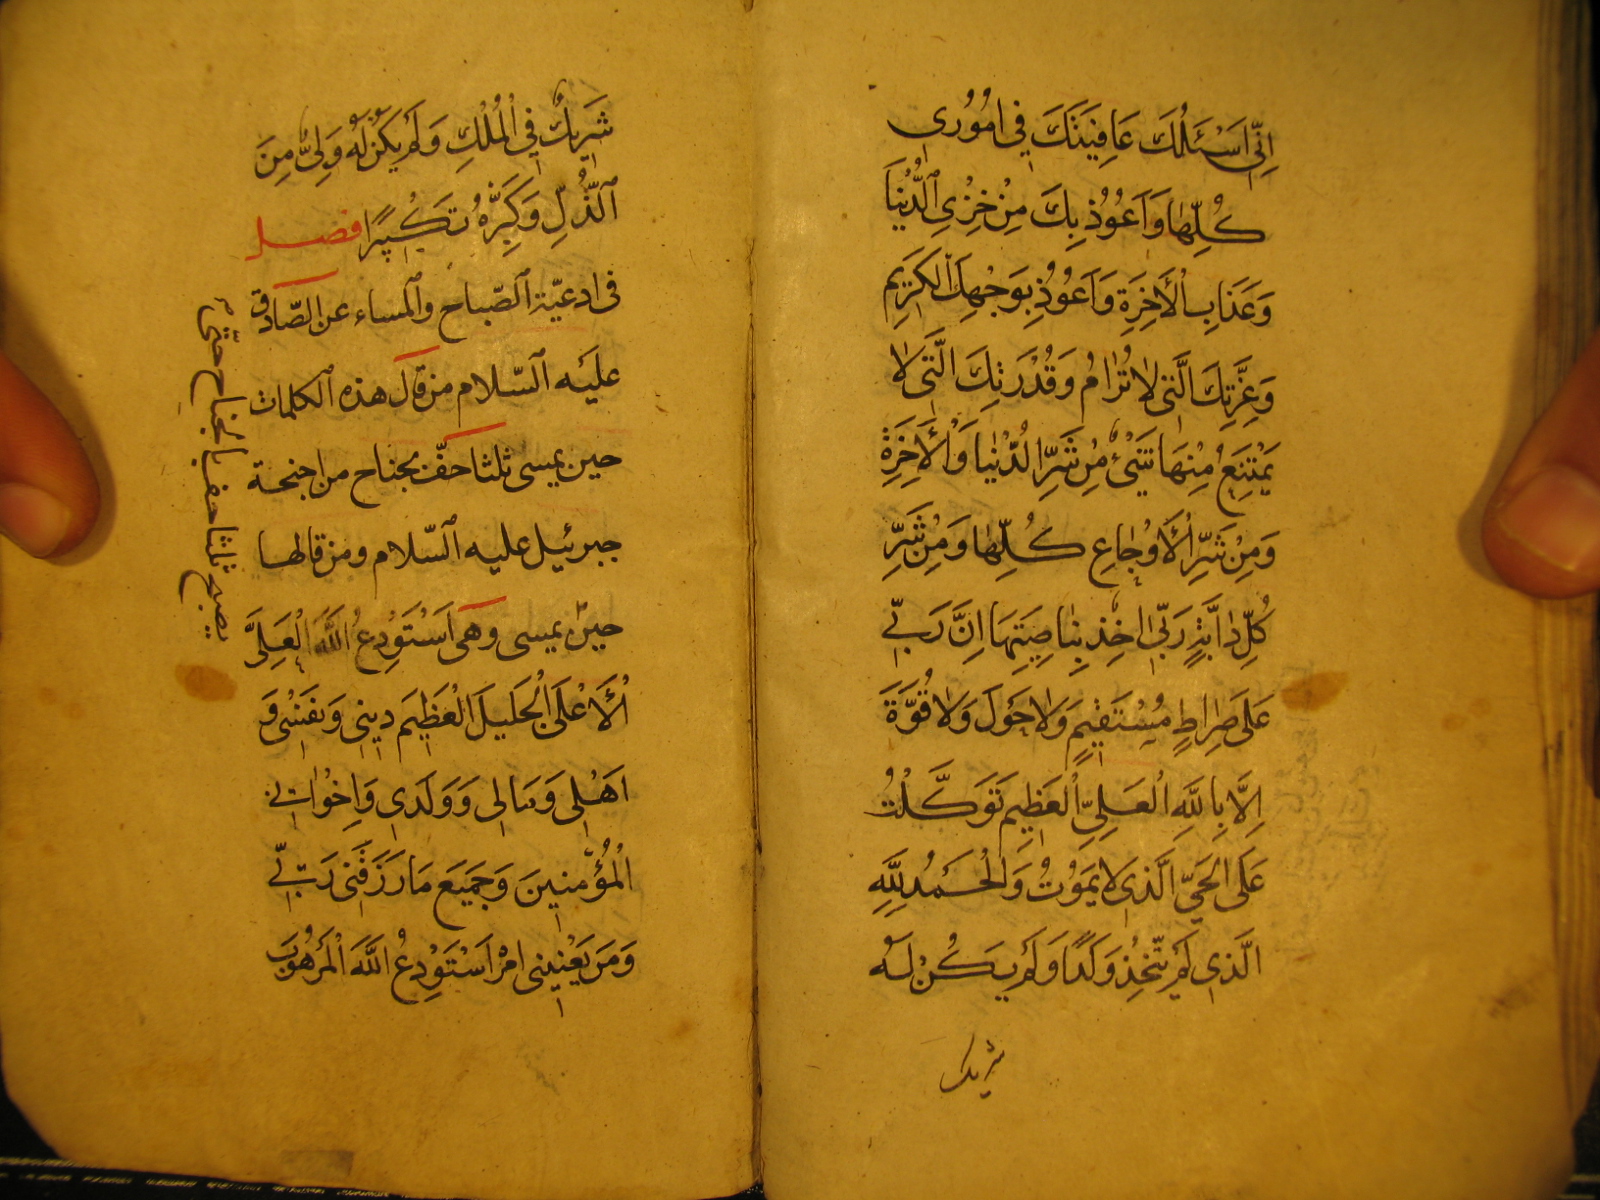 اِنّي اَسْئَلُكَ عَافِيَتَكَ في اُمُوُري
كُلِّهٰا وَاَعُوُذُ بِكَ مِنْ خِزْىِ الدُّنْيَا
وَعَذَابِ الْأخِرَةِ وَاَعُوُذُ بِوَجْهِكَ الْكَرَيِم
وَعِزَّتِكَ الَّتي لاٰ تُرٰامُ وَقُدْرَتِكَ الَّتى لاٰ
يَمْتَنِعُ مِنْهَا شَىْءٌ مِنْ شَرِّ الدُّنْيٰا وَالْأخِرَةِ
وَمِنْ شَرِّ الْأَوْجٰاعِ كُلِّهٰا وَمِنْ شَرِّ
كُلِّ دٰابَّةٍ رَبّى اٰخِذٌ بِنٰاصِيَتِهَا اِنَّ رَبّي
عَلىٰ صِرٰاطٍ مُسْتَقيمٍ وَلاٰ حَوْلَ وَلاٰ قُوَّةَ
اِلاَّ بِاللهِ الْعَلِىِّ الْعَظيمِ تَوَكَّلْتُ
عَلَى الْحَيِّ الَّذى لاٰ يَمَوُتُ وَالْحَمْدُ لِلّٰهِ
الَّذي لَمْ يَتَّخِذْ وَلَدًا وَلَمْ يَكُنْ لَهُ
شريك
شَريكٌ فِي الْمُلْكِ وَلَمْ يَكُنْ لَهُ وَلِىٌّ مِنَ
الذُّلِّ وَكَبِّرْهُ تَكْبيرًا فصل
فى ادعيّة الصّباح والمساء عن الصّادق
عليه السّلام من قال هذه الكلمات
حين يمسى ثلثا حفّ بجناح من اجنحة
جبرئيل عليه السّلام ومن قالها
حين يمسى وهى اَسْتَوْدِعُ اللّٰهَ الْعَلِىَّ
الْأَعْلَى الْجَليلَ الْعَظيمَ ديني وَنَفْسي وَ
اَهْلى وَمٰالى وَوَلَدى وَاِخْوٰاني
الْمُؤْمِنينَ وَجَميعَ مَا رَزَقَنى رَبّي
وَمَنْ يَعْنينى امْرُ اَسْتَوْدِعُ اللّٰهَ الْمَرْهُوُبَ
يصبح ثلثا حف بجناح حتى